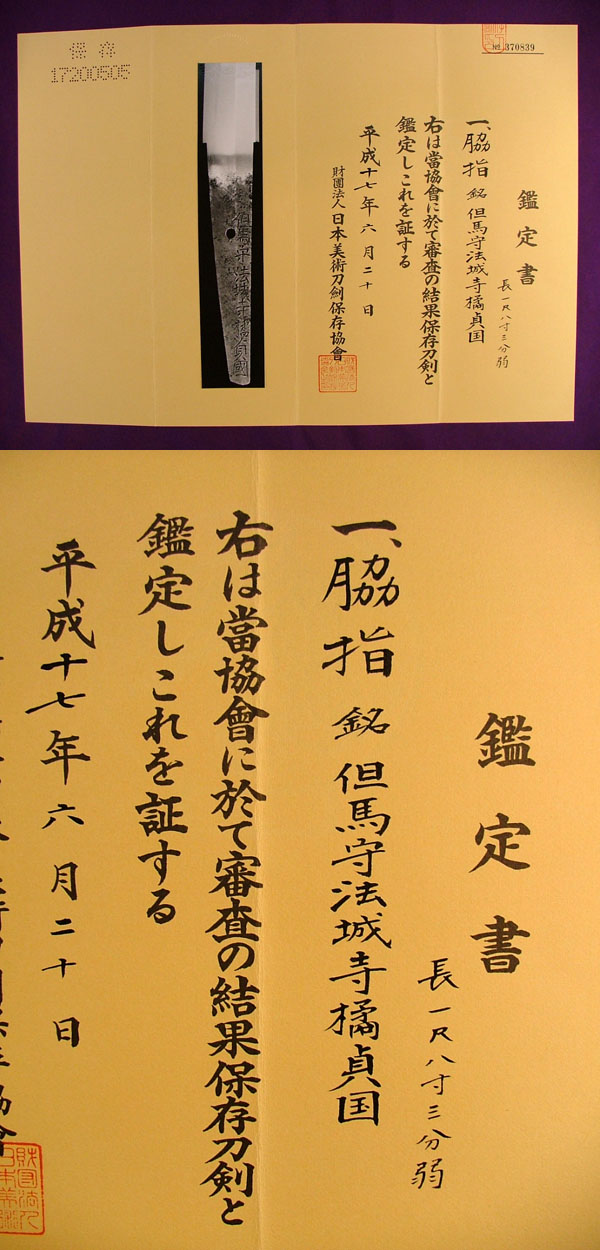 保存
17200505
№ 370839
鑑定書
長一尺八寸三分弱
一、脇指 銘 但馬守法城寺橘貞国
右は當協會に於て審査の結果保存刀剣と
鑑定しこれを証する
平成十七年六月二十日
財團法人日本美術刀劍保存協會
但馬守法城寺橘貞國
鑑定書
長一尺八寸三分弱
一、脇指 銘 但馬守法城寺橘貞国
右は當協會に於て審査の結果保存刀剣と
鑑定しこれを証する
平成十七年六月二十日